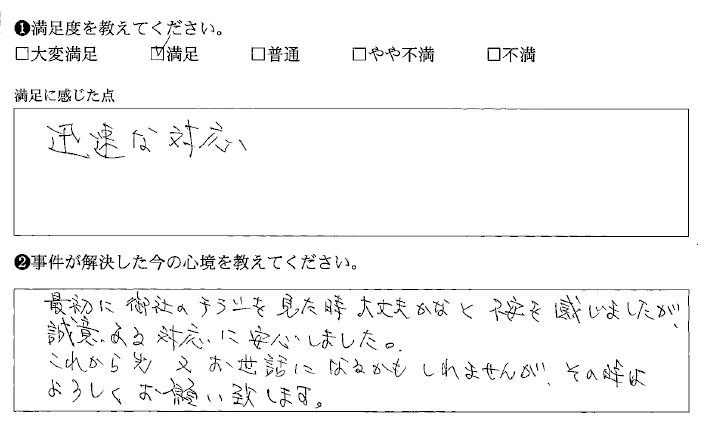 ❶満足度を教えてください。
□大変満足 ☑満足 □普通 □やや不満 □不満
満足に感じた点
迅速な対応
❷事件が解決した今の心境を教えてください。
最初に御社のチラシを見た時大丈夫かなと不安を感じましたが、
誠意ある対応に安心しました。
これから先又お世話になるかもしれませんが、その時は
よろしくお願い致します。